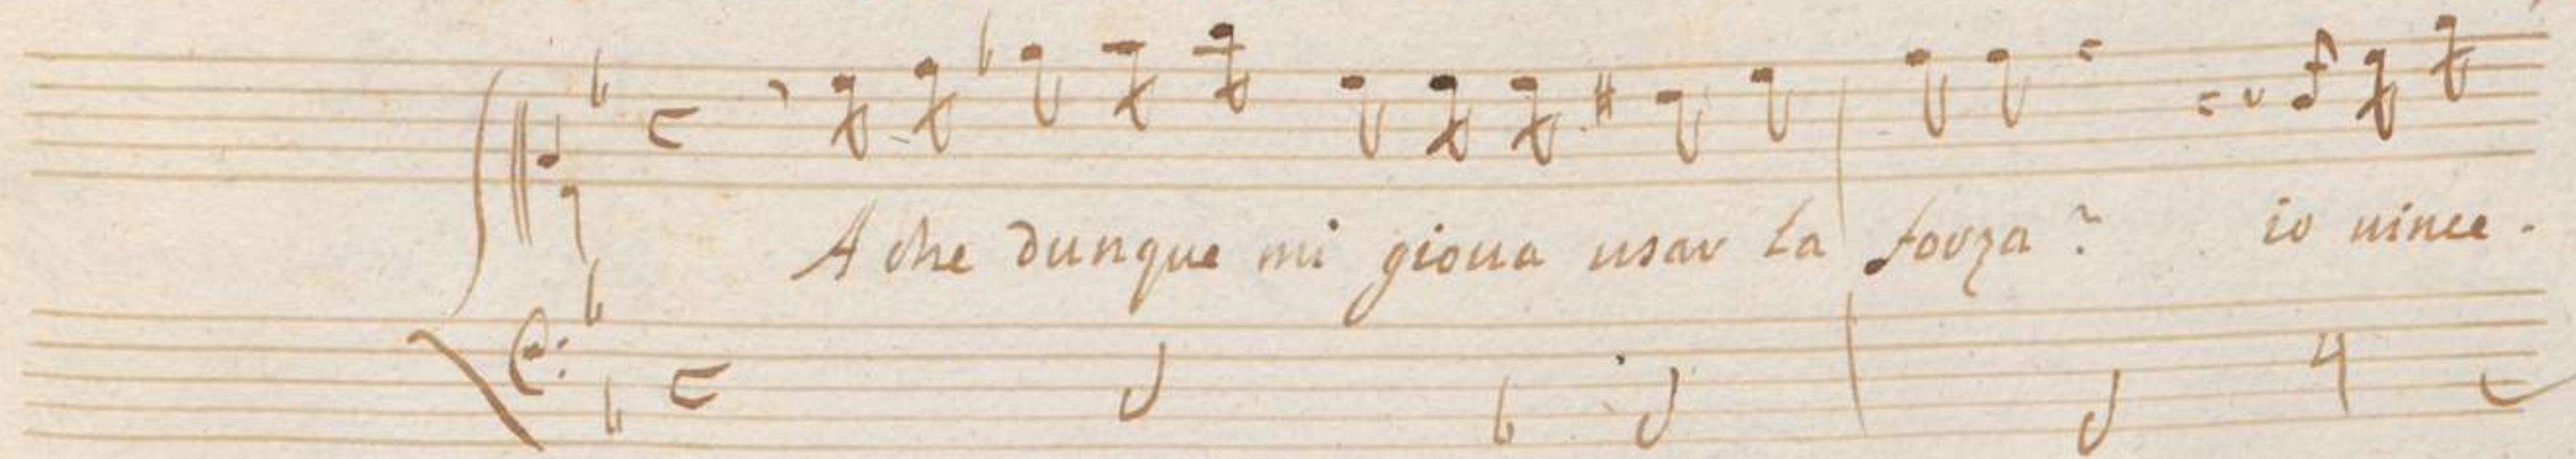 A che dunque mi gioua usar la forza? io uince-